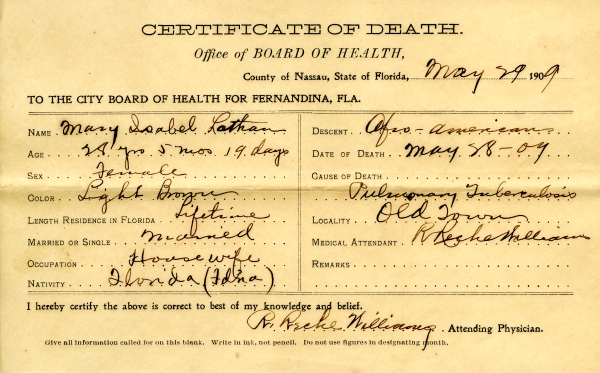 CERTIFICATE OF DEATH.
Office of BOARD OF HEALTH,
County of Nassau, State of Florida, May 29 1909
TO THE CITY BOARD OF HEALTH FOR FERNANDINA, FLA.
NAME Mary Isabel Lathan
AGE 28 yrs 5 mos 19 days
SEX Female
COLOR Light Brown
LENGTH RESIDENCE IN FLORIDA Lifetime
MARRIED OR SINGLE Married
OCCUPATION Housewife
NATIVITY Florida (Fdna)
DESCENT Afro-American
DATE OF DEATH May 28-09
CAUSE OF DEATH
Pulmonary Tuberculosis
LOCALITY Old Town
MEDICAL ATTENDANT Williams
REMARKS
I hereby certify the above is correct to best of my knowledge and belief.
Williams Attending Physician.
Give all information called for on this blank. Write in ink, not pencil. Do not use figures in designating month.